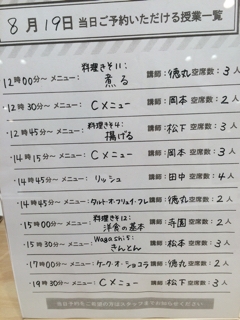 8月19日 当日ご予約いただける授業一覧
12時00分〜 メニュー: 料理きそ11: 煮る 講師:徳丸 空席数:3人
12時30分〜 メニュー: Cメニュー 講師:岡本 空席数:2人
12時45分〜 メニュー: 料理きそ4: 揚げる 講師:松下 空席数:3人
14時15分〜 メニュー: Cメニュー 講師:岡本 空席数:3人
14時45分〜 メニュー: リッシュ 講師:田中 空席数:4人
14時45分〜 メニュー: タルト・オ・フリュイ・フレ 講師:徳丸 空席数:2人
15時00分〜 メニュー: 料理きそ12: 洋食の基本 講師:寺園 空席数:2人
15時30分〜 メニュー: Wagashi5: きんとん 講師:松本 空席数:3人
17時00分〜 メニュー: ケーク・オ・ショコラ 講師:徳丸 空席数:2人
19時30分〜 メニュー: Cメニュー 講師:松下 空席数:3人